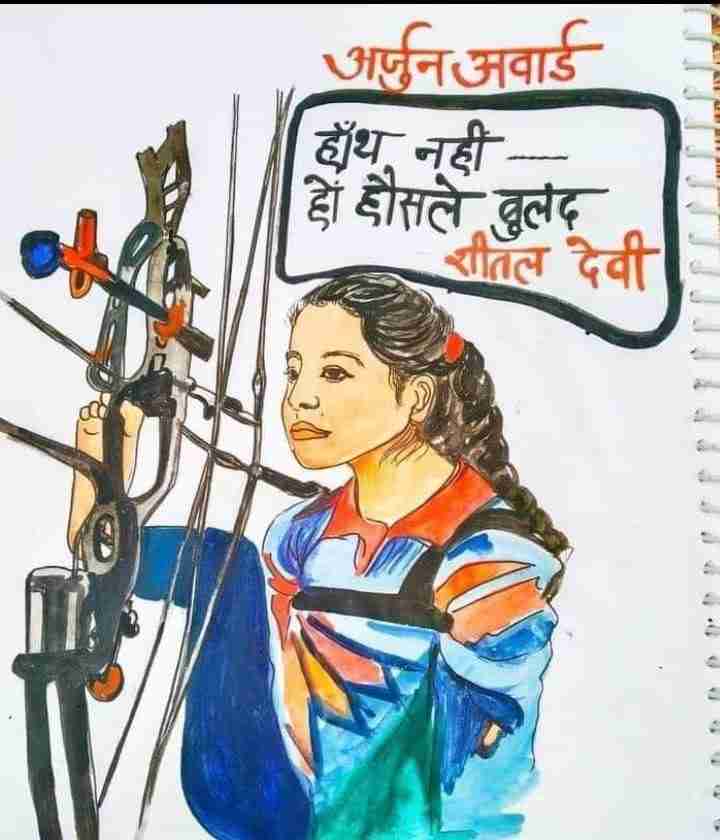 अर्जुन अवार्ड
हाँथ नही —
हो हौसले बुलंद
शीतल देवी